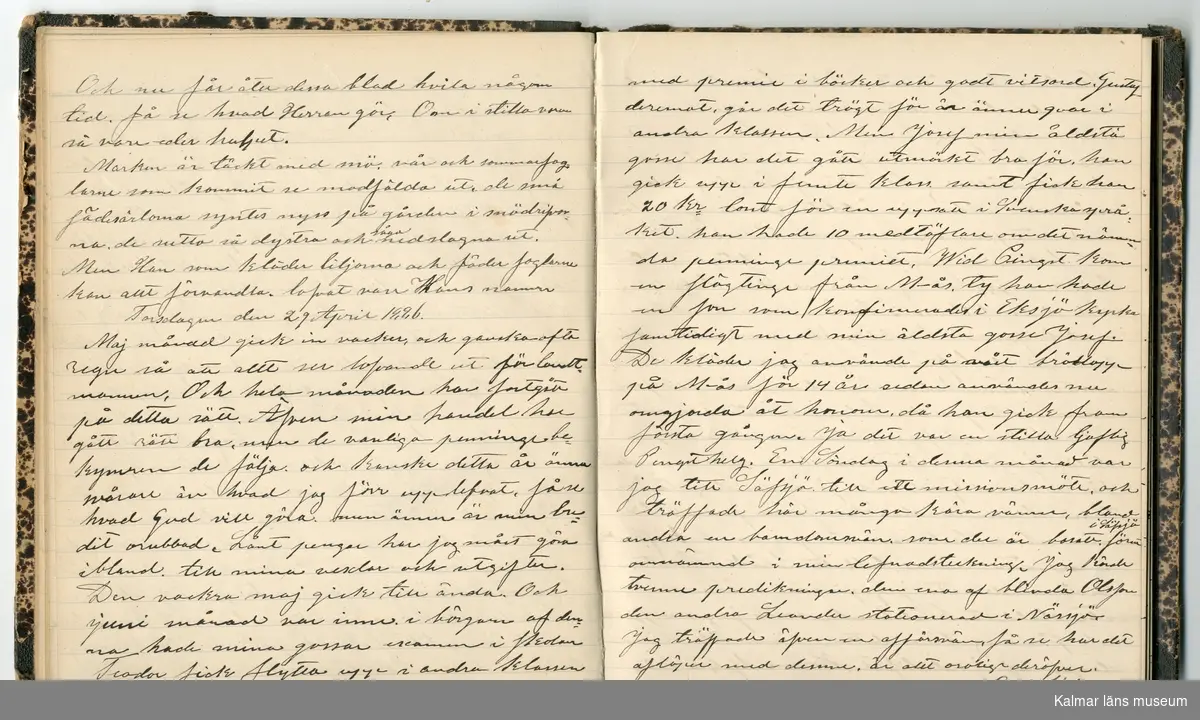 Och nu får åter dessa blad hvila någon
tid. få se hvad Herren gör. Om i stilla
så vare eder hulpet.
Marken är täckt med snö, vår och sommarfog
larne som kommit se modfälda ut, de små
sädesärlorna syntes nyss på gården i snödrifvor
na, de sutto så dystra och såga nedslagna ut.
Men Han som kläder liljorna och föder foglarne
kan allt förvandla. lofvat vare Hans namn
Torsdagen den 29 April 1896.
Maj månad gick in vacker, och ganska ofta
regn så att allt ser lofvande ut för landt
mannen. Och hela månaden har fortgått
på detta sätt. Äfven min handel har
gått rätt bra, men de vanliga penninge be-
kymren de följa. och kanske detta år ännu
svårare än hvad jag förr upplefvat, få se
hvad Gud vill göra. men ännu är min kre-
dit orubbad. Lånt pengar har jag måst göra
ibland. till mina vexlar och utgifter.
Den vackra maj gick till ända. Och
juni månad var inne. i början af den-
na hade mina gossar examen i skolan
Teodor fick flytta upp i andra klassen
med premie i böcker och godt vitsord. Gustaf
deremot, går det trögt för är ännu qvar i
andra klassen. Men Josef min äldsta
gosse har det gått utmärkt bra för. han
gick upp i femte klass samt fick han
20 Kr. för en uppsatts i Svenska språ-
ket. han hade 10 medtäflare om det nämn
da penninge premiet. Wid Pingst kom
en slägtinge från M-ås, ty han hade
en son som konfirmerades i Eksjö kyrka
samtidigt med min äldsta gosse Josef.
De kläder jag använde på vårt bröllopp
på M-ås för 14 år sedan användes nu
omgjorda åt honom, då han gick fram
första gången. Ja det var en stilla ljuflig
Pingst helg. En Söndag i denna månad var
jag till Säfsjö till ett missionsmöte, och
träffade här många kära vänner, bland
andra en barndomsvän, som der är bosatt i Säfsjö förut
omnämnd i min lefnadsteckning. Jag hörde
tvenne predikningar. den ena af blinda Olsson
den andra Leander stationerad i Nässjö.
Jag träffade äfven en affärsvän, få se hur det
aflöper med denne, är allt orolig deröfver.
Kalmar läns museum